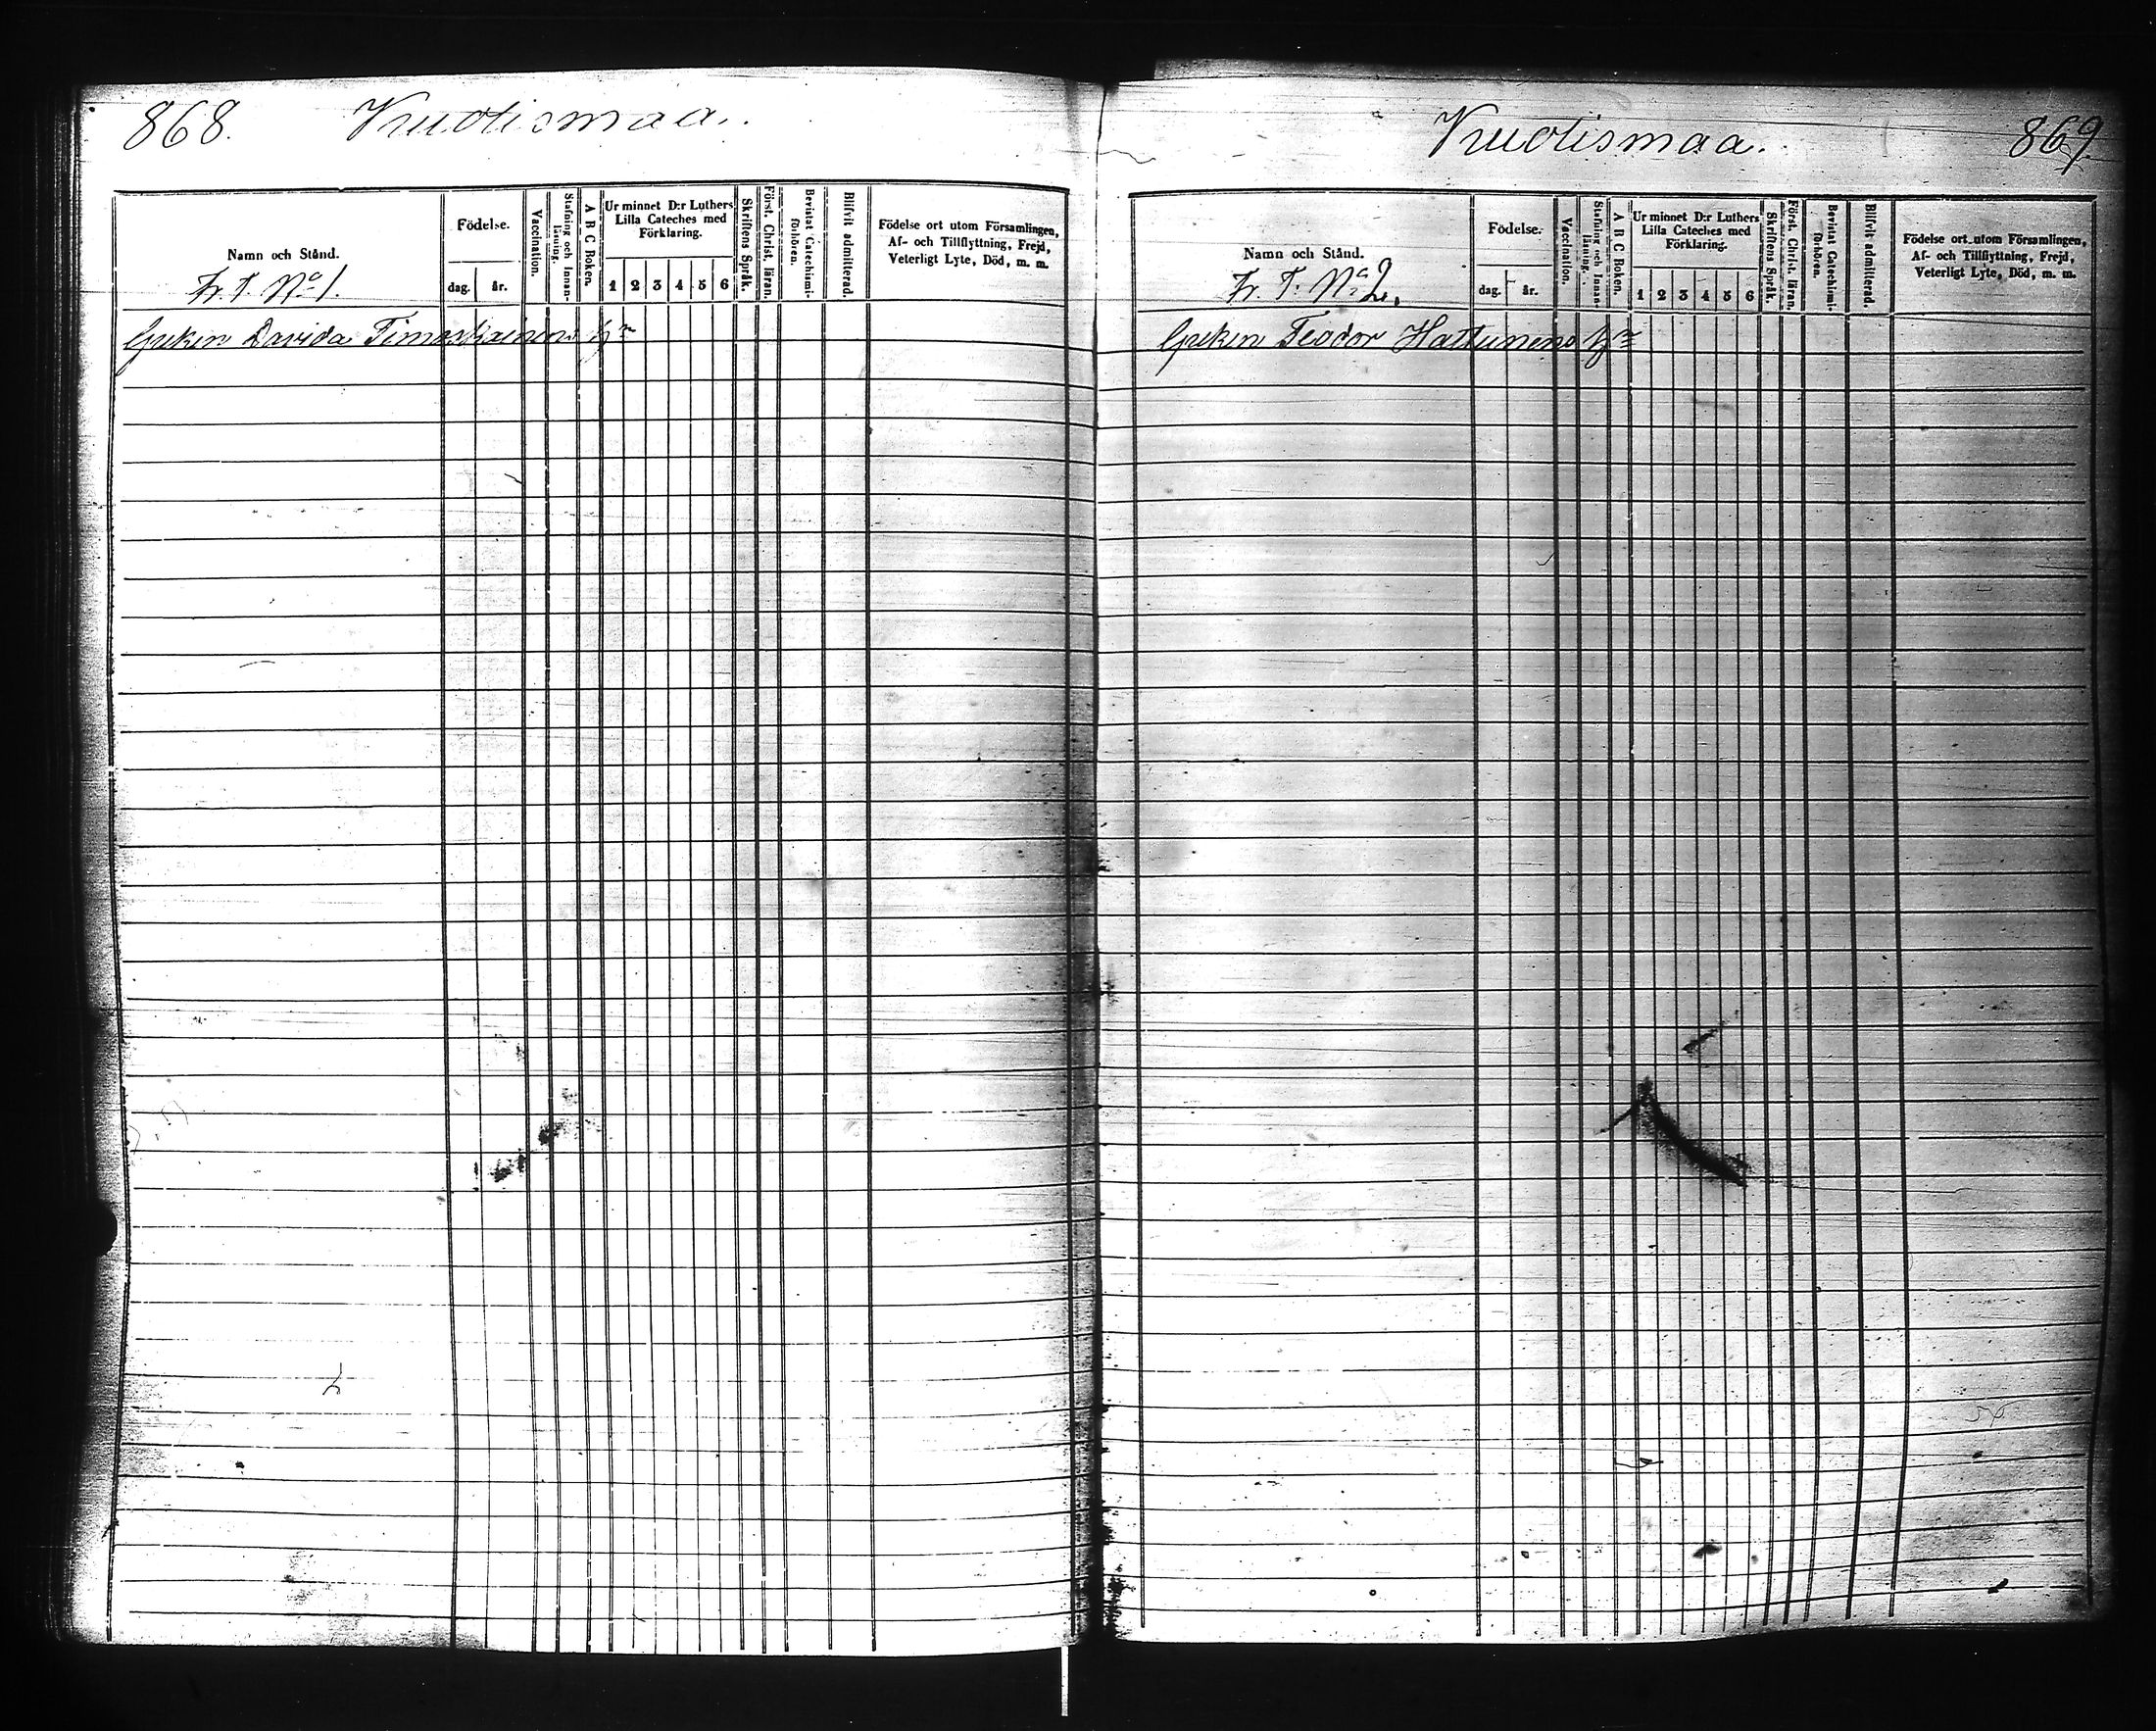 868. Kuolismaa.
Namn och Stånd.
Fr. T. No 1.
Födelse.
dag.
år.
Vaccination.
Stafning och Innan-
läsning.
A B C Boken.
Ur minnet D:r Luthers
Lilla Cateches med
Förklaring.
1 2 3 4 5 6
Skriftens Språk.
Först. Christ. läran.
Bevistat Catechismi-
förhören.
Blifvit admitterad.
Födelse ort utom Församlingen,
Af- och Tillflyttning, Frejd,
Veterligt Lyte, Död, m. m.
Greken Davida Timoskainens
Kuolismaa. 869
Namn och Stånd.
Fr. T. No 2.
Födelse.
dag.
år.
Vaccination.
Stafning och Innan-
läsning.
A B C Boken.
Ur minnet D:r Luthers
Lilla Cateches med
Förklaring.
1 2 3 4 5 6
Skriftens Språk.
Först. Christ. läran.
Bevistat Catechismi-
förhören.
Blifvit admitterad.
Födelse ort utom Församlingen,
Af- och Tillflyttning, Frejd,
Veterligt Lyte, Död, m. m.
Greken Teodor Hattunens